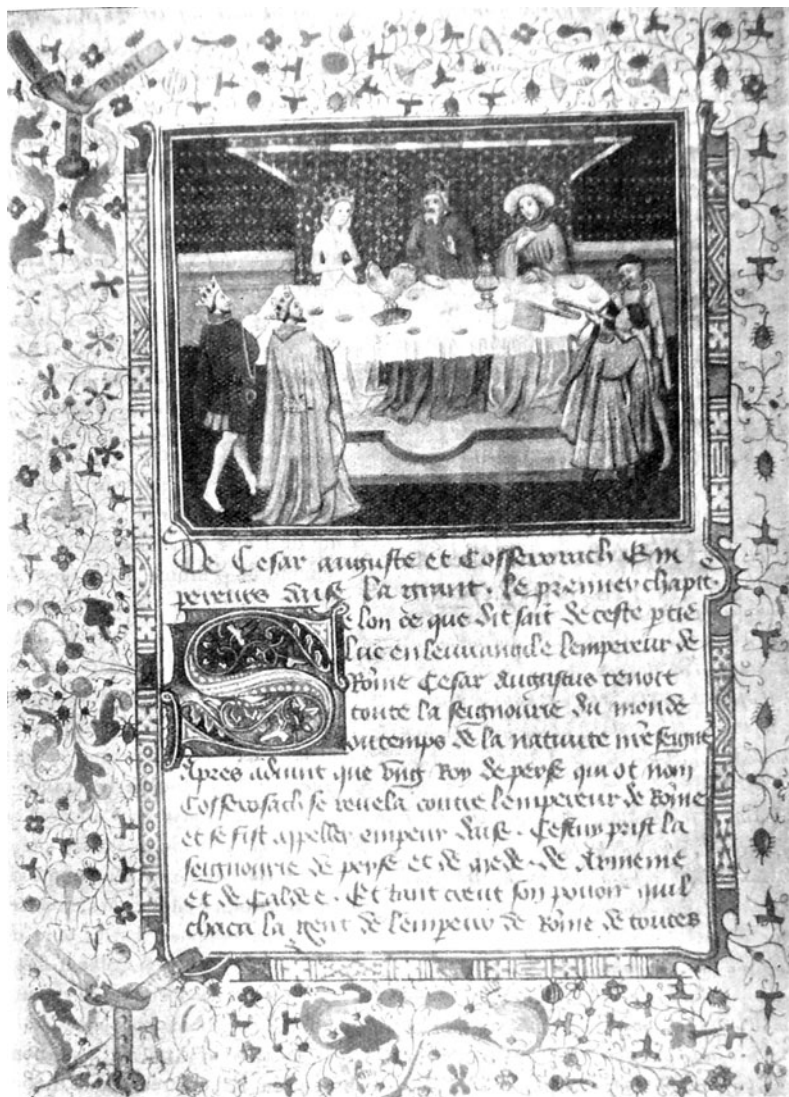 De Cesar auguste et Cosserosach Em
pereurs daise la grant. le premier chapit.
Selon ce que dit sait de ceste ptie
luc en leuvangile lempereur de
Rome Cesar Augustus tenoit
toute la seignourie du monde
ou temps de la nativite nre seignr
Apres advint que ung Roy de perse qui ot nom
Cosserosach se revela contre lempereur de Rome
et se fist appeller empeur daise. Cestuy prist la
seignourie de perse et de mede. de Armenie
et de Caldee. Et tant creut son povoir quil
chaca la gent de lempeur de Rome de toutes